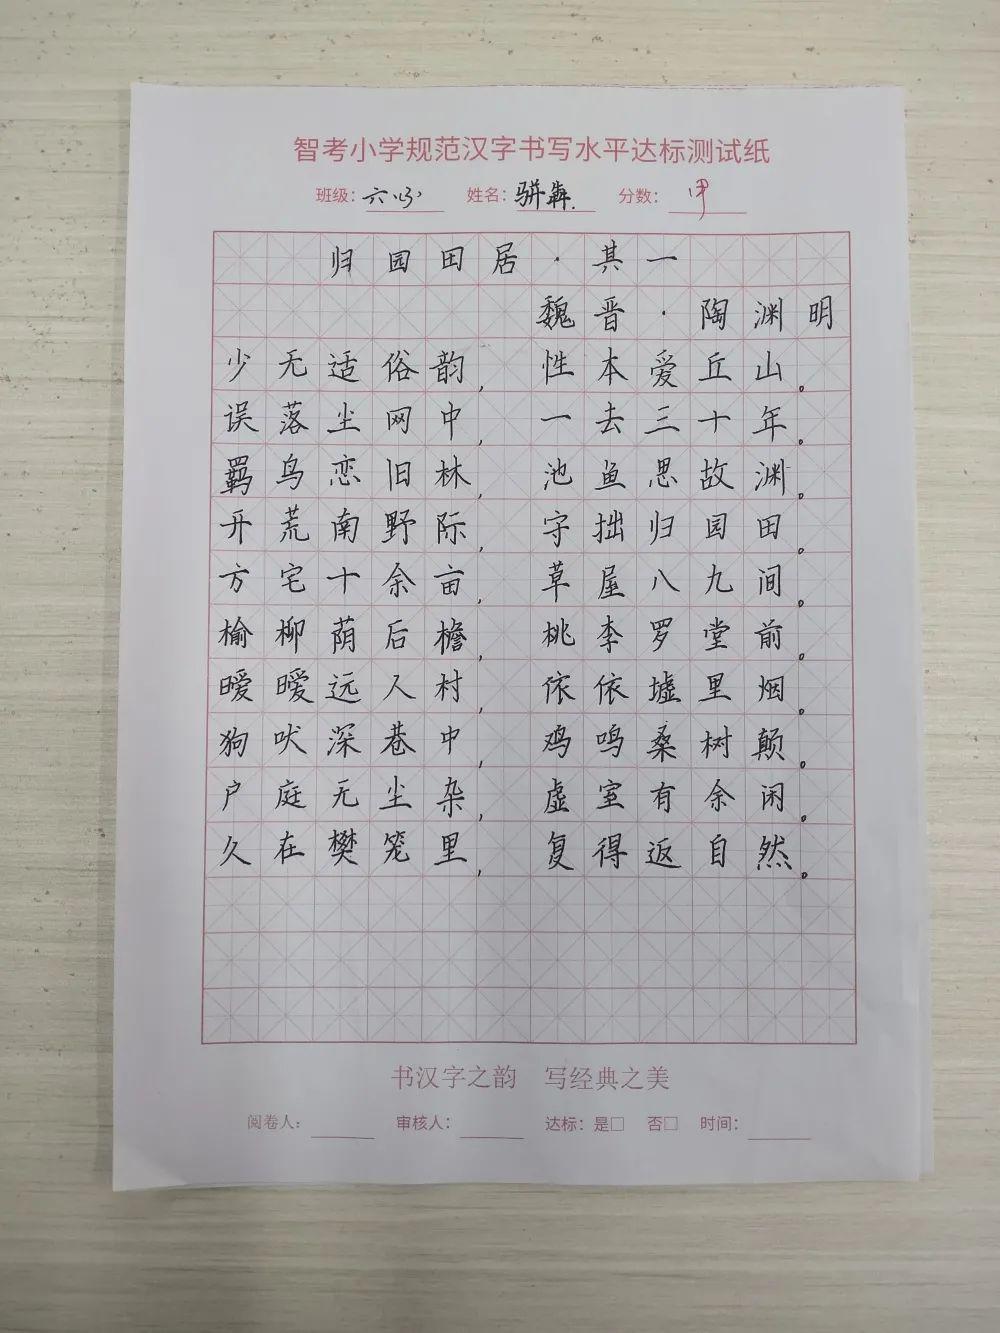 智考小学规范汉字书写水平达标测试纸
班级：六 姓名：骈犇. 分数：甲
归园田居·其一
魏晋·陶渊明
少无适俗韵，性本爱丘山。
误落尘网中，一去三十年。
羁鸟恋旧林，池鱼思故渊。
开荒南野际，守拙归园田。
方宅十余亩，草屋八九间。
榆柳荫后檐，桃李罗堂前。
暧暧远人村，依依墟里烟。
狗吠深巷中，鸡鸣桑树颠。
户庭无尘杂，虚室有余闲。
久在樊笼里，复得返自然。
书汉字之韵 写经典之美
阅卷人： 审核人： 达标：是□ 否□ 时间：